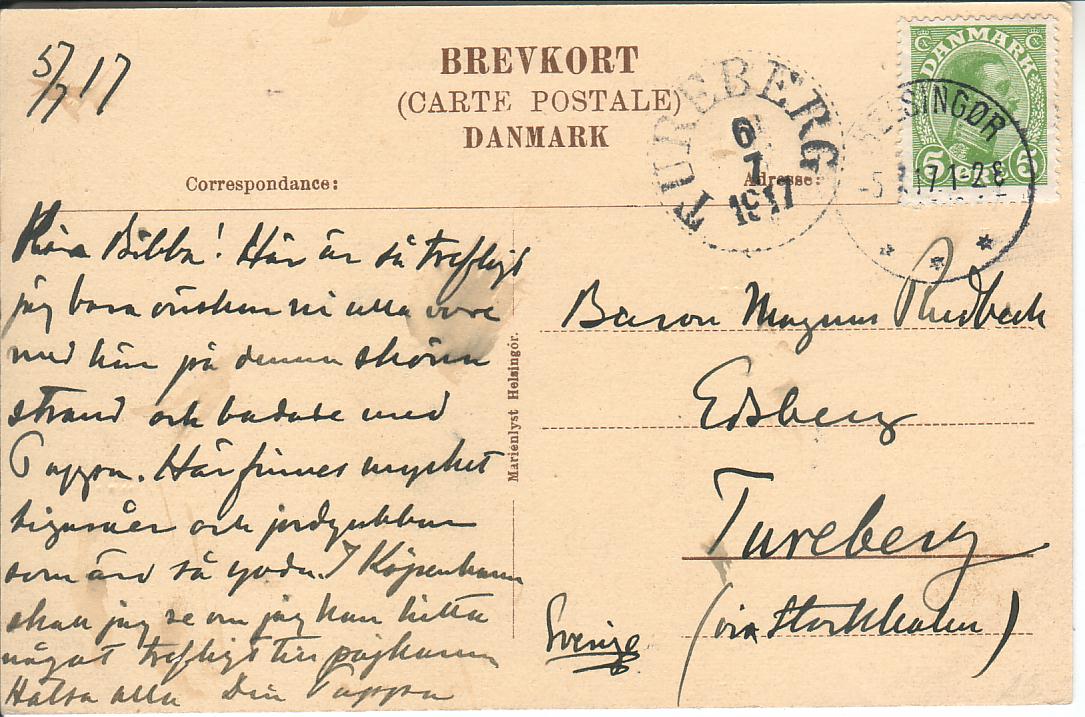 5/7 17
BREVKORT
(CARTE POSTALE)
DANMARK
Correspondance:
Adresse:
TUREBERG
6
7
1917
DANMARK
5 ØRE 5
HELSINGØR
-5.7.17.1-2E
Kära Bibba! Här är så trefligt
jag bara önskar ni alla vore
med här på denna sköna
strand och badade med
Pappa. Här finnes mycket
och jordgubbar
som äro så goda. I Köpenhamn
skall jag se om jag kan hitta
något trefligt till pojkarna
Hälsa alla Din Pappa
Marienlyst Helsingör.
Baron Magnus Rudbeck
Edsberg
Tureberg
(via Stockholm)
Sverige